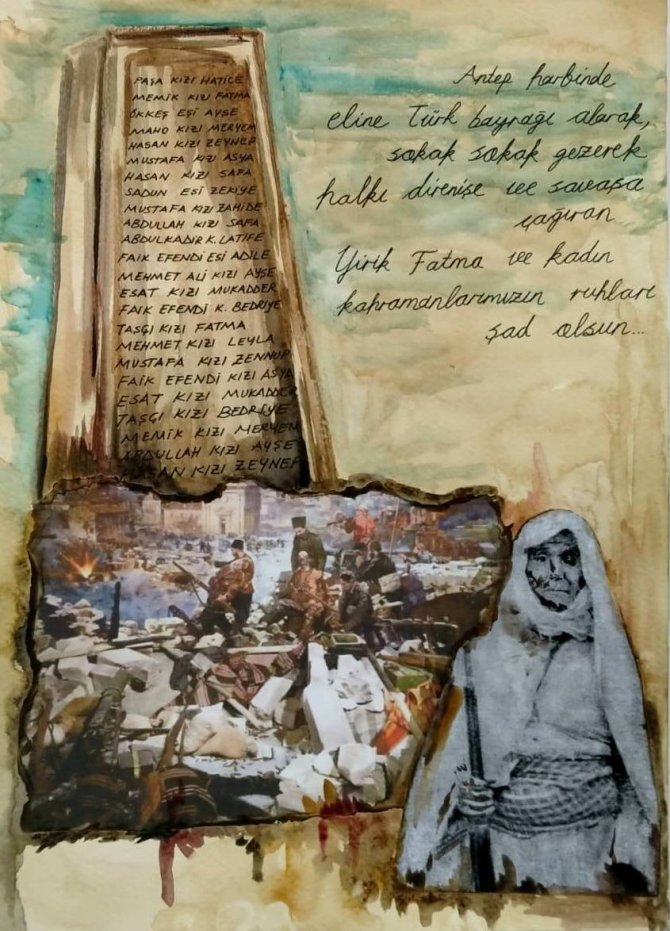 PAŞA KIZI HATİCE
MEMİK KIZI FATMA
ÖKKEŞ EŞİ AYŞE
MAHO KIZI MERYEM
HASAN KIZI ZEYNEP
MUSTAFA KIZI ASYA
HASAN KIZI SAFA
SADUN EŞİ ZEKİYE
MUSTAFA KIZI ZAHİDE
ABDULLAH KIZI SAFA
ABDULKADIR K. LATİFE
FAİK EFENDİ EŞİ ADİLE
MEHMET ALİ KIZI AYŞE
ESAT KIZI MUKADDER
FAİK EFENDİ K. BEDRİYE
TAŞÇI KIZI FATMA
MEHMET KIZI LEYLA
MUSTAFA KIZI ZENNUP
FAİK EFENDİ KIZI ASYA
ESAT KIZI MUKADDER
TAŞÇI KIZI BEDRİYE
MEMİK KIZI MERYEM
ABDULLAH KIZI AYŞE
HASAN KIZI ZEYNEP
Antep harbinde
eline Türk bayrağı alarak,
sokak sokak gezerek
halkı direnişe ve savaşa
çağıran
Yirik Fatma ve kadın
kahramanlarımızın ruhları
şad olsun...